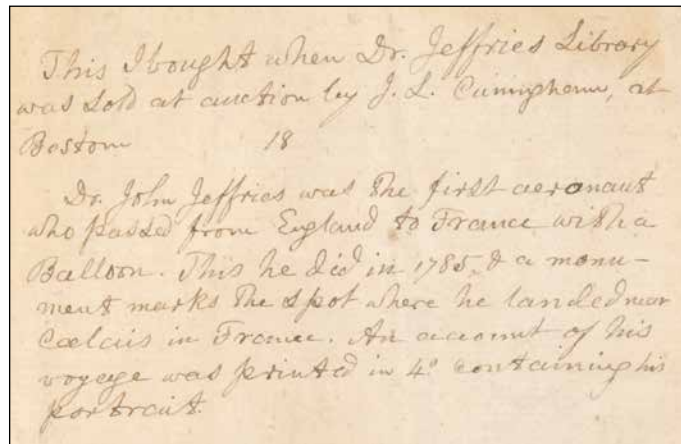 This I bought when Dr. Jeffries Library
was sold at auction by J. L. Cunningham, at
Boston 18
Dr. John Jeffries was the first aeronaut
who passed from England to France with a
Balloon. This he did in 1785, & a monu-
ment marks the spot where he landed near
Calais in France. An account of his
voyage was printed in 4º containing his
portrait.